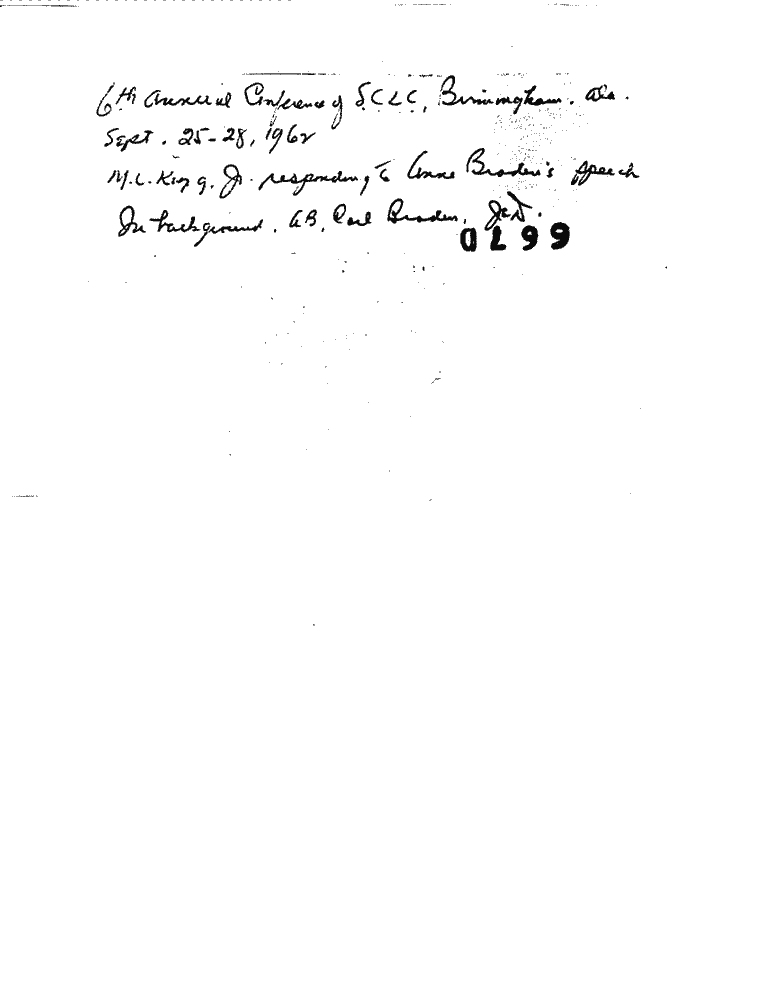 6th Annual Conference of S.C.L.C., Birmingham. Ala.
Sept. 25-28, 1962
M.L. King, Jr. responding to Anne Braden's speech
In background. AB, Carl Braden,